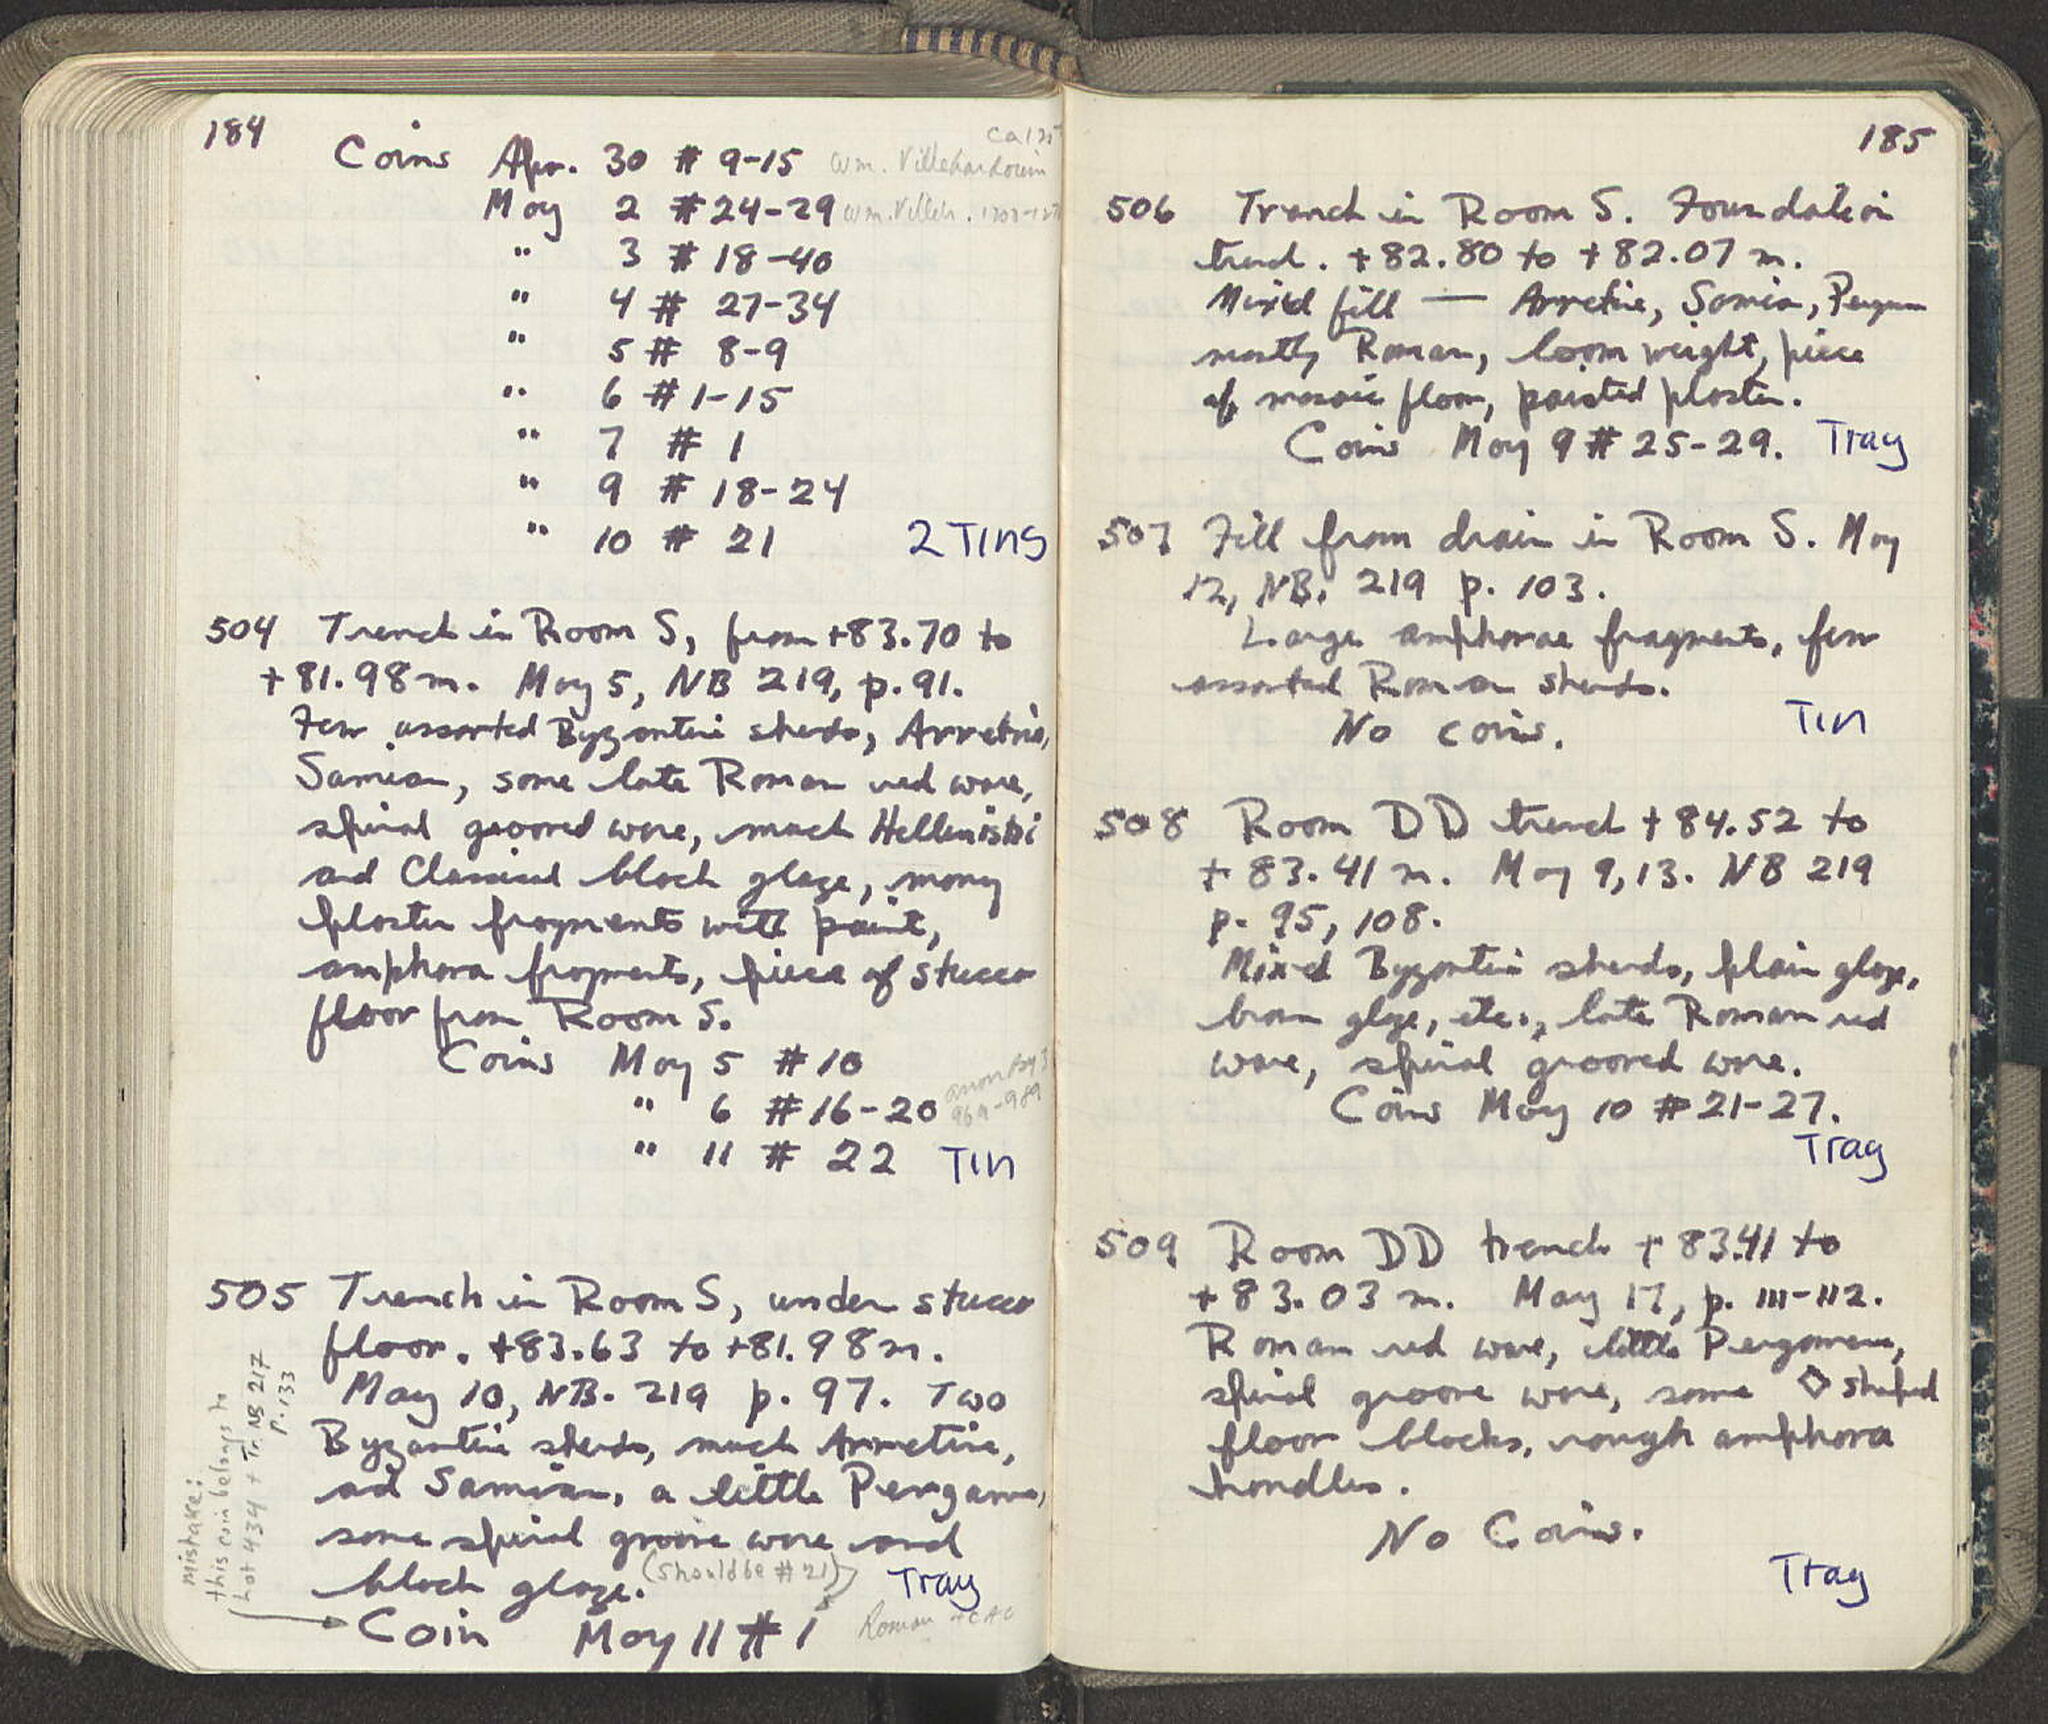 184
Coins Apr. 30 # 9-15 Wm. Villehardouin
May 2 # 24-29 Wm. Villeh.
" 3 # 18-40
" 4 # 27-34
" 5 # 8-9
" 6 # 1-15
" 7 # 1
" 9 # 18-24
" 10 # 21 2 Tins
504 Trench in Room S, from +83.70 to
+81.98 m. May 5, NB 219, p. 91.
Few assorted Byzantine sherds, Arretine,
Samian, some late Roman red ware,
spiral grooved ware, much Hellenistic
and Classical black glaze, many
plaster fragments with paint,
amphora fragments, piece of stucco
floor from Room S.
Coins May 5 # 10
" 6 # 16-20 anon Byz
969-989
" 11 # 22 Tin
505 Trench in Room S, under stucco
floor. +83.63 to +81.98 m.
May 10, NB. 219 p. 97. Two
Byzantine sherds, much Arretine,
and Samian, a little Pergamene,
some spiral groove ware and
black glaze. (should be # 21) Tray
Coin May 11 # 1 Roman
mistake:
this coin belongs to
Lot 434 + Tr. NB 217
P. 133
185
506 Trench in Room S. Foundation
trench. +82.80 to +82.07 m.
Mixed fill — Arretine, Samian, Pergam
mostly Roman, loom weight, piece
of mosaic floor, painted plaster.
Coins May 9 # 25-29. Tray
507 Fill from drain in Room S. May
12, NB. 219 p. 103.
Large amphorae fragments, few
assorted Roman sherds.
No coins. Tin
508 Room DD trench +84.52 to
+83.41 m. May 9, 13. NB 219
p. 95, 108.
Mixed Byzantine sherds, plain glaze,
brown glaze, etc., late Roman red
ware, spiral grooved ware.
Coins May 10 # 21-27.
Tray
509 Room DD trench +83.41 to
+83.03 m. May 17, p. 111-112.
Roman red ware, little Pergamene,
spiral groove ware, some ◇ shaped
floor blocks, rough amphora
handles.
No Coins.
Tray